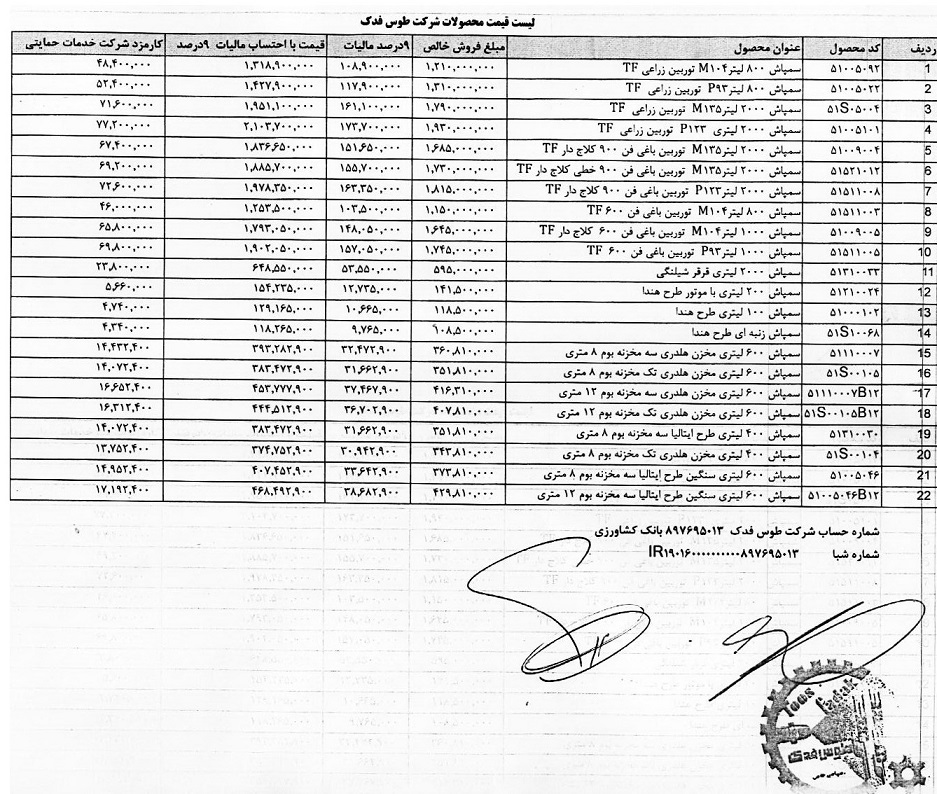 لیست قیمت محصولات شرکت طوس فدک
ردیف کد محصول عنوان محصول مبلغ فروش خالص ۹درصد مالیات قیمت با احتساب مالیات ۹درصد کارمزد شرکت خدمات حمایتی
1 ۵۱۰۰۵۰۹۲ سمپاش ۸۰۰ لیتر M۱۰۴ توربین زراعی TF ۱,۲۱۰,۰۰۰,۰۰۰ ۱۰۸,۹۰۰,۰۰۰ ۱,۳۱۸,۹۰۰,۰۰۰ ۴۸,۴۰۰,۰۰۰
2 ۵۱۰۰۵۰۲۲ سمپاش ۸۰۰ لیتر P۹۳ توربین زراعی TF ۱,۳۱۰,۰۰۰,۰۰۰ ۱۱۷,۹۰۰,۰۰۰ ۱,۴۲۷,۹۰۰,۰۰۰ ۵۲,۴۰۰,۰۰۰
3 ۵۱S۰۵۰۰۴ سمپاش ۲۰۰۰ لیتر M۱۳۵ توربین زراعی TF ۱,۷۹۰,۰۰۰,۰۰۰ ۱۶۱,۱۰۰,۰۰۰ ۱,۹۵۱,۱۰۰,۰۰۰ ۷۱,۶۰۰,۰۰۰
4 ۵۱۰۰۵۱۰۱ سمپاش ۲۰۰۰ لیتری P۱۲۳ توربین زراعی TF ۱,۹۳۰,۰۰۰,۰۰۰ ۱۷۳,۷۰۰,۰۰۰ ۲,۱۰۳,۷۰۰,۰۰۰ ۷۷,۲۰۰,۰۰۰
5 ۵۱۰۰۹۰۰۴ سمپاش ۲۰۰۰ لیتر M۱۳۵ توربین باغی فن ۹۰۰ کلاج دار TF ۱,۶۸۵,۰۰۰,۰۰۰ ۱۵۱,۶۵۰,۰۰۰ ۱,۸۳۶,۶۵۰,۰۰۰ ۶۷,۴۰۰,۰۰۰
6 ۵۱۵۲۱۰۱۲ سمپاش ۲۰۰۰ لیتر M۱۳۵ توربین باغی فن ۹۰۰ خطی کلاج دار TF ۱,۷۳۰,۰۰۰,۰۰۰ ۱۵۵,۷۰۰,۰۰۰ ۱,۸۸۵,۷۰۰,۰۰۰ ۶۹,۲۰۰,۰۰۰
7 ۵۱۵۱۱۰۰۸ سمپاش ۲۰۰۰ لیتر P۱۲۳ توربین باغی فن ۹۰۰ کلاج دار TF ۱,۸۱۵,۰۰۰,۰۰۰ ۱۶۳,۳۵۰,۰۰۰ ۱,۹۷۸,۳۵۰,۰۰۰ ۷۲,۶۰۰,۰۰۰
8 ۵۱۵۱۱۰۰۳ سمپاش ۸۰۰ لیتر M۱۰۴ توربین باغی فن ۶۰۰ TF ۱,۱۵۰,۰۰۰,۰۰۰ ۱۰۳,۵۰۰,۰۰۰ ۱,۲۵۳,۵۰۰,۰۰۰ ۴۶,۰۰۰,۰۰۰
9 ۵۱۰۰۹۰۰۵ سمپاش ۱۰۰۰ لیتر M۱۰۴ توربین باغی فن ۶۰۰ کلاج دار TF ۱,۶۴۵,۰۰۰,۰۰۰ ۱۴۸,۰۵۰,۰۰۰ ۱,۷۹۳,۰۵۰,۰۰۰ ۶۵,۸۰۰,۰۰۰
10 ۵۱۵۱۱۰۰۵ سمپاش ۱۰۰۰ لیتر P۹۳ توربین باغی فن ۶۰۰ TF ۱,۷۴۵,۰۰۰,۰۰۰ ۱۵۷,۰۵۰,۰۰۰ ۱,۹۰۲,۰۵۰,۰۰۰ ۶۹,۸۰۰,۰۰۰
11 ۵۱۳۱۰۰۳۳ سمپاش ۲۰۰۰ لیتری قرقر شیلنگی ۵۹۵,۰۰۰,۰۰۰ ۵۳,۵۵۰,۰۰۰ ۶۴۸,۵۵۰,۰۰۰ ۲۳,۸۰۰,۰۰۰
12 ۵۱۲۱۰۰۲۴ سمپاش ۲۰۰ لیتری با موتور طرح هندا ۱۴۱,۵۰۰,۰۰۰ ۱۲,۷۳۵,۰۰۰ ۱۵۴,۲۳۵,۰۰۰ ۵,۶۶۰,۰۰۰
13 ۵۱۰۰۰۱۰۲ سمپاش ۱۰۰ لیتری طرح هندا ۱۱۸,۵۰۰,۰۰۰ ۱۰,۶۶۵,۰۰۰ ۱۲۹,۱۶۵,۰۰۰ ۴,۷۴۰,۰۰۰
14 ۵۱S۱۰۰۶۸ سمپاش زنبه ای طرح هندا ۱۰۸,۵۰۰,۰۰۰ ۹,۷۶۵,۰۰۰ ۱۱۸,۲۶۵,۰۰۰ ۴,۳۴۰,۰۰۰
15 ۵۱۱۱۰۰۰۷ سمپاش ۶۰۰ لیتری مخزن هلدری سه مخزنه بوم ۸ متری ۳۶۰,۸۱۰,۰۰۰ ۳۲,۴۷۲,۹۰۰ ۳۹۳,۲۸۲,۹۰۰ ۱۴,۴۳۲,۴۰۰
16 ۵۱S۰۰۱۰۵ سمپاش ۶۰۰ لیتری مخزن هلدری تک مخزنه بوم ۸ متری ۳۵۱,۸۱۰,۰۰۰ ۳۱,۶۶۲,۹۰۰ ۳۸۳,۴۷۲,۹۰۰ ۱۴,۰۷۲,۴۰۰
17 ۵۱۱۱۰۰۰۷B۱۲ سمپاش ۶۰۰ لیتری مخزن هلدری سه مخزنه بوم ۱۲ متری ۴۱۶,۳۱۰,۰۰۰ ۳۷,۴۶۷,۹۰۰ ۴۵۳,۷۷۷,۹۰۰ ۱۶,۶۵۲,۴۰۰
18 ۵۱S۰۰۱۰۵B۱۲ سمپاش ۶۰۰ لیتری مخزن هلدری تک مخزنه بوم ۱۲ متری ۴۰۷,۸۱۰,۰۰۰ ۳۶,۷۰۲,۹۰۰ ۴۴۴,۵۱۲,۹۰۰ ۱۶,۳۱۲,۴۰۰
19 ۵۱۳۱۰۰۳۰ سمپاش ۴۰۰ لیتری طرح ایتالیا سه مخزنه بوم ۸ متری ۳۵۱,۸۱۰,۰۰۰ ۳۱,۶۶۲,۹۰۰ ۳۸۳,۴۷۲,۹۰۰ ۱۴,۰۷۲,۴۰۰
20 ۵۱S۰۰۱۰۴ سمپاش ۴۰۰ لیتری مخزن هلدری تک مخزنه بوم ۸ متری ۳۴۳,۸۱۰,۰۰۰ ۳۰,۹۴۲,۹۰۰ ۳۷۴,۷۵۲,۹۰۰ ۱۳,۷۵۲,۴۰۰
21 ۵۱۰۰۵۰۴۶ سمپاش ۶۰۰ لیتری سنگین طرح ایتالیا سه مخزنه بوم ۸ متری ۳۷۳,۸۱۰,۰۰۰ ۳۳,۶۴۲,۹۰۰ ۴۰۷,۴۵۲,۹۰۰ ۱۴,۹۵۲,۴۰۰
22 ۵۱۰۰۵۰۴۶B۱۲ سمپاش ۶۰۰ لیتری سنگین طرح ایتالیا سه مخزنه بوم ۱۲ متری ۴۲۹,۸۱۰,۰۰۰ ۳۸,۶۸۲,۹۰۰ ۴۶۸,۴۹۲,۹۰۰ ۱۷,۱۹۲,۴۰۰
شماره حساب شرکت طوس فدک ۸۹۷۶۹۵۰۱۳ بانک کشاورزی
شماره شبا IR۱۹۰۱۶۰۰۰۰۰۰۰۰۰۰۸۹۷۶۹۵۰۱۳
Toos fadak
طوس فدک